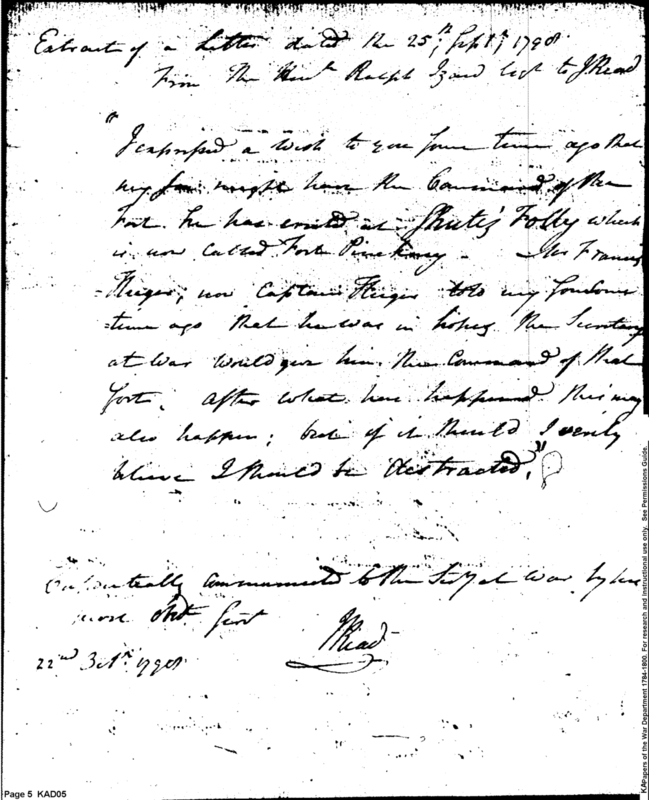 Extract of a Letter dated the 25th Septr 1798
From The Honl Ralph Izard Esqr to J Read
"I expressed a wish to you some time ago that
my Son might have the Command of the
Fort he has erected at Shute's Folly which
is now called Fort Pinckney. Mr Francis
Huger, now Captain Huger told my Son some
time ago that he was in hopes the Secretary
at War would give him the Command of that
fort. After what has happened this may
also happen; but if it should I verily
believe I should be distracted."
Confidentially communicated to the Secy at War by his
most Obt Servt
J Read
22nd Octr 1798
Page 5 KAD05
Papers of the War Department 1784-1800. For research and instructional use only. See Permissions Guide.